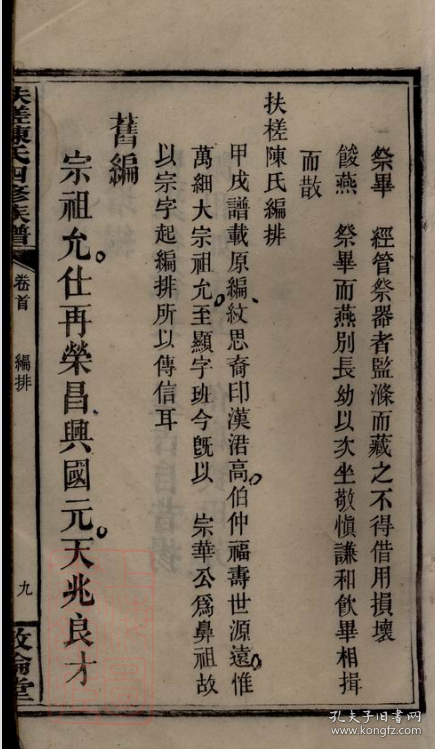 祭畢　經管祭器者監滌而藏之不得借用損壞
餕燕　祭畢而燕別長幼以次坐敬愼謙和飮畢相揖
而散
扶槎陳氏編排
甲戌譜載原編紋思裔印漢涒高伯仲福壽世源遠惟
萬細大宗祖允至顯字班今旣以　宗華公爲鼻祖故
以宗字起編排所以傳信耳
舊編
宗祖允仕再榮昌興國元天兆良才
扶槎陳氏四修族譜
卷首　編排
九
敦倫堂
孔夫子旧书网